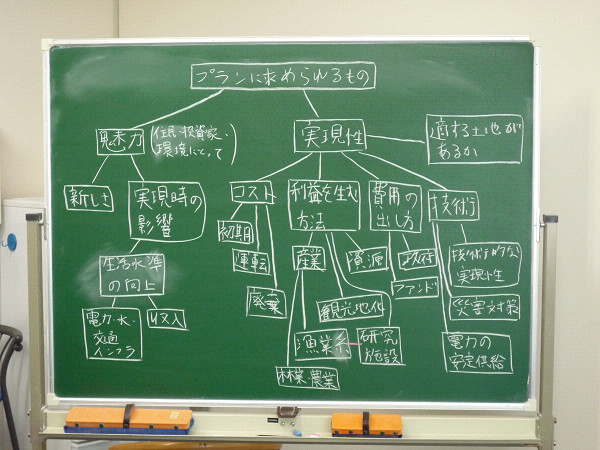 プランに求められるもの
魅力
(住民・投資家・
環境にとって)
実現性
適する土地が
あるか
新しさ
実現時の
影響
コスト
利益を生む
方法
費用の
出し方
技術
初期
運転
廃棄
産業
資源
政府
ファンド
技術的な
実現性
生活水準
の向上
観光地化
災害対策
電力・水・
交通
インフラ
収入
漁業系
研究
施設
電力の
安定供給
林業・農業